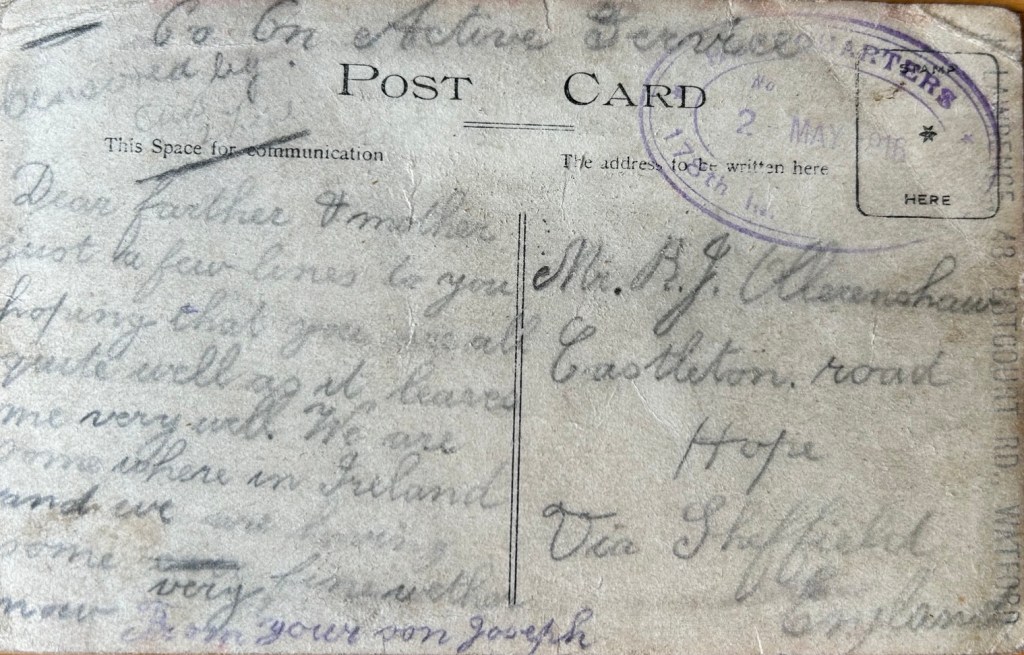 Co. On Active Service
Censored by.
POST CARD
This Space for communication
The address to be written here
STAMP
HERE
QUARTERS
No
2 MAY 1916
178th In.
Dear farther & mother
just a few lines to you
hoping that you are all
quite well as it leaves
me very well. We are
some where in Ireland
and we are having
some
very fine wether
now From your son Joseph
Mr. R. J. Ollerenshaw
Castleton. road
Hope
Via Sheffield
England
ESTCOURT RD. WATFORD